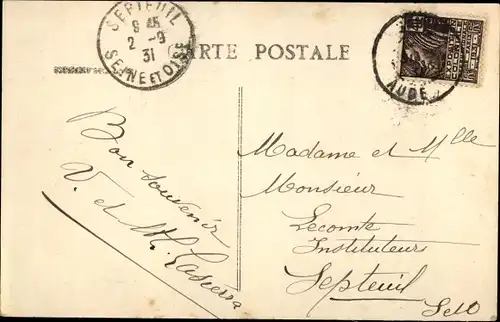 SEPTEUIL
9 45
2 - 9
31
SEINE ET OISE
CARTE POSTALE
AUBE
Bon souvenir
V. et M.
Madame et Mlle
Monsieur
Lecomte
Instituteurs
Septeuil
S et O